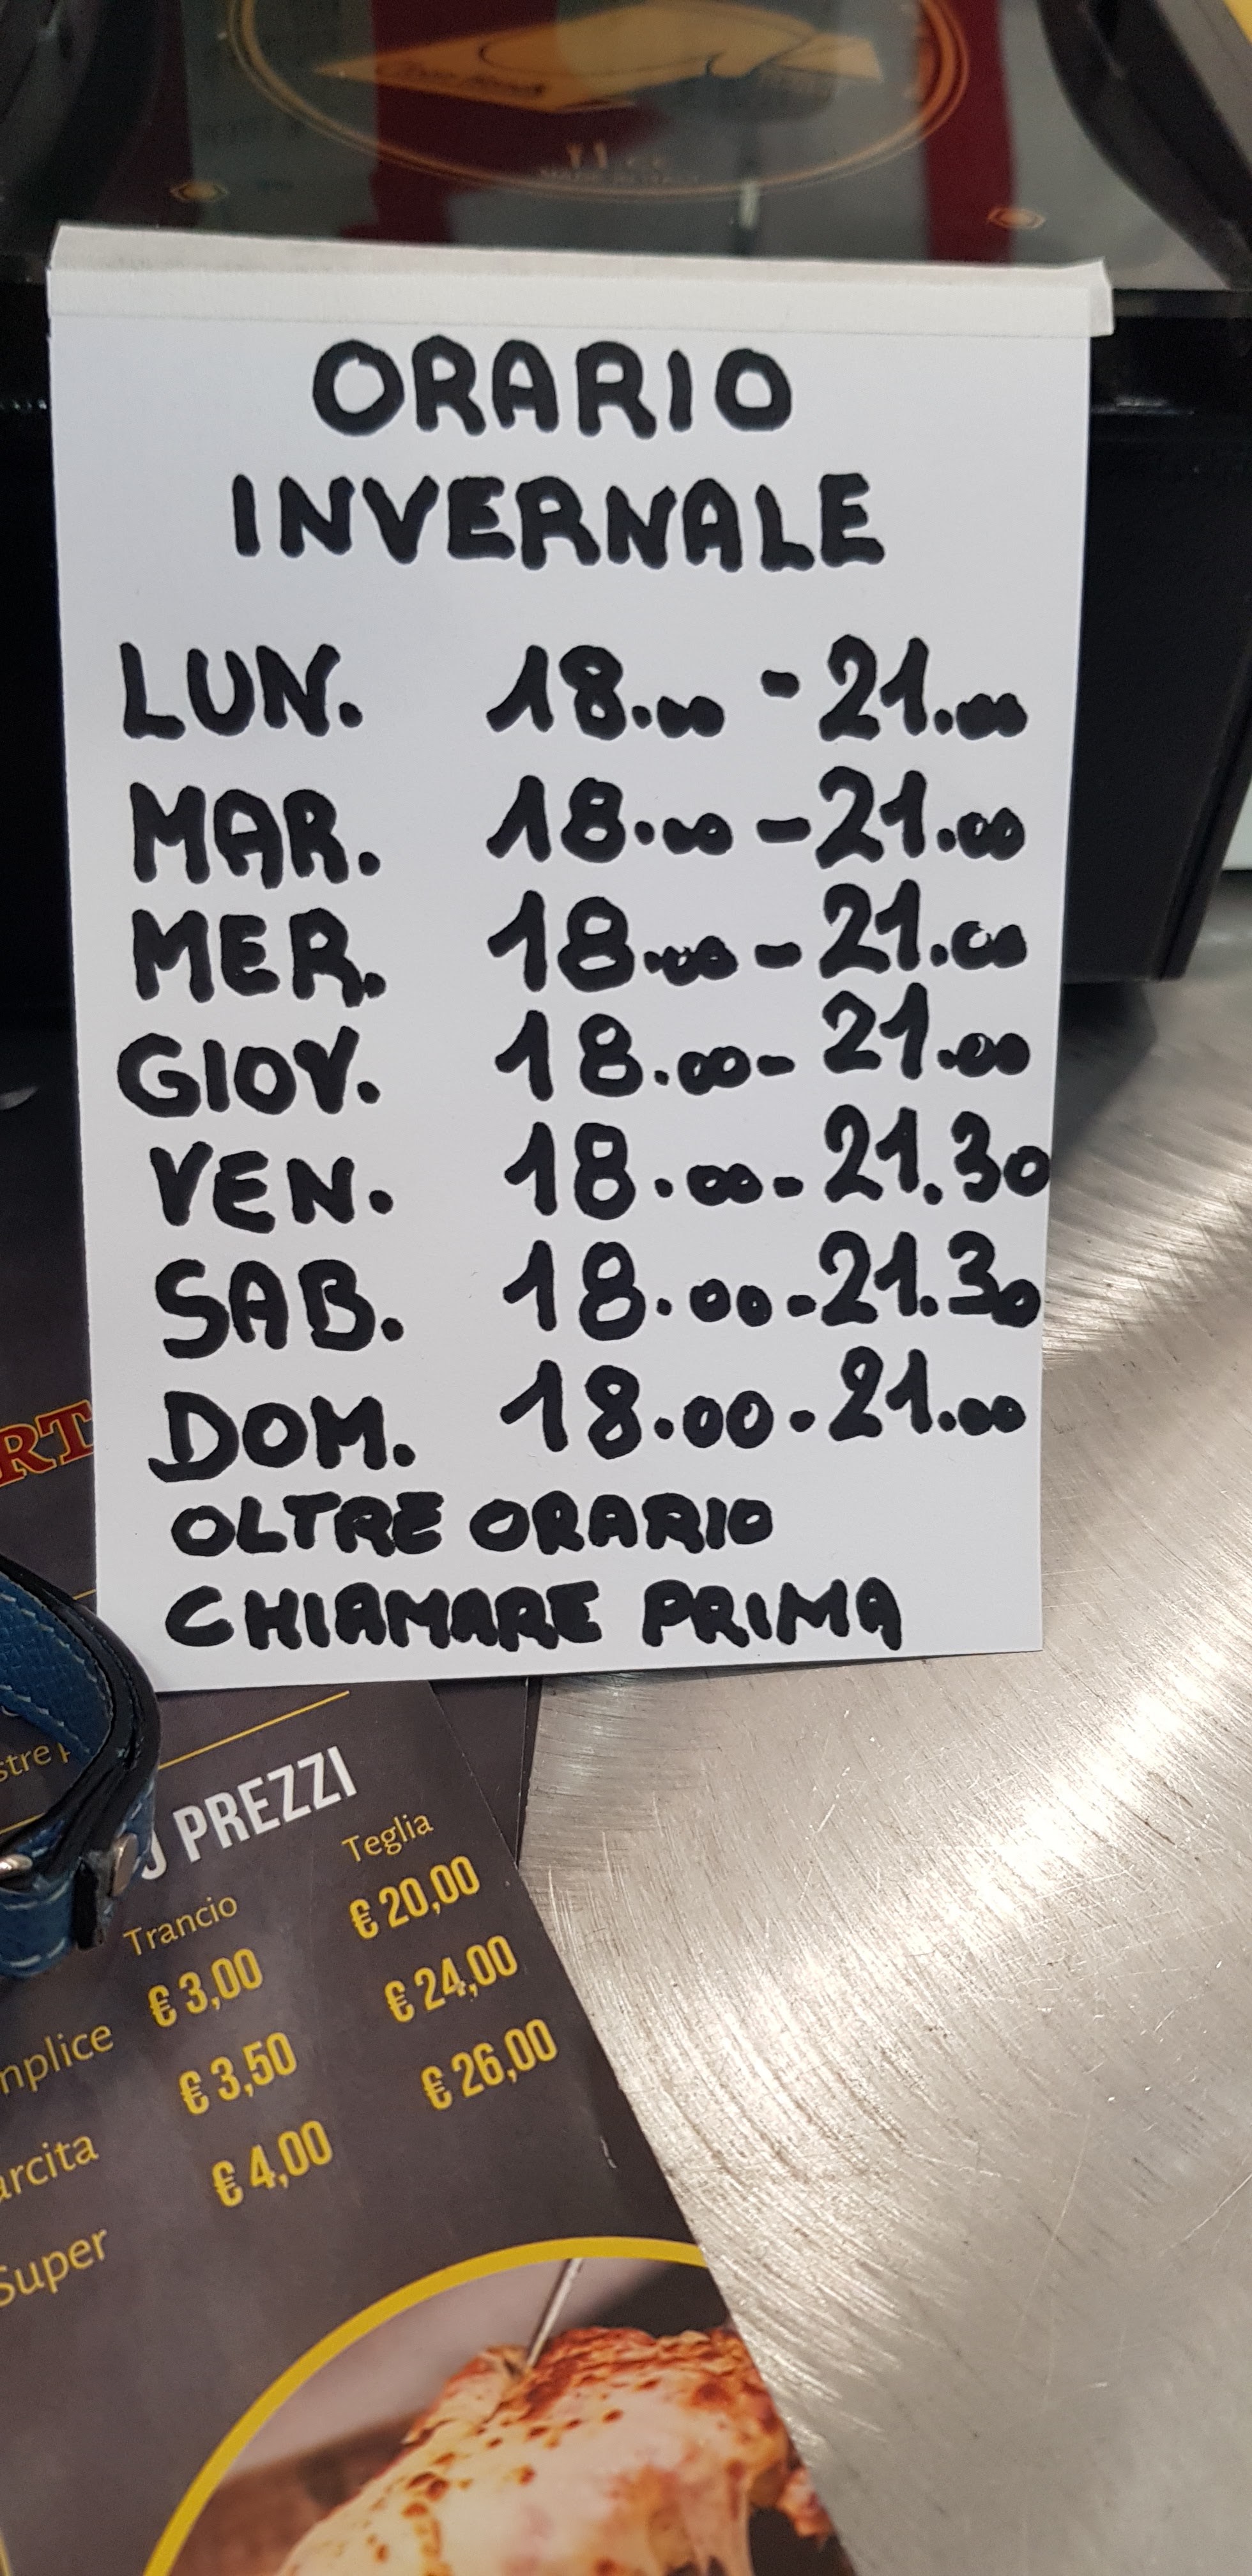 ORARIO
INVERNALE
LUN. 18.00 - 21.00
MAR. 18.00 - 21.00
MER. 18.00 - 21.00
GIOV. 18.00 - 21.00
VEN. 18.00 - 21.30
SAB. 18.00 - 21.30
DOM. 18.00 - 21.00
OLTRE ORARIO
CHIAMARE PRIMA
RT
stre
PREZZI
Trancio Teglia
mplice € 3,00 € 20,00
arcita € 3,50 € 24,00
Super € 4,00 € 26,00